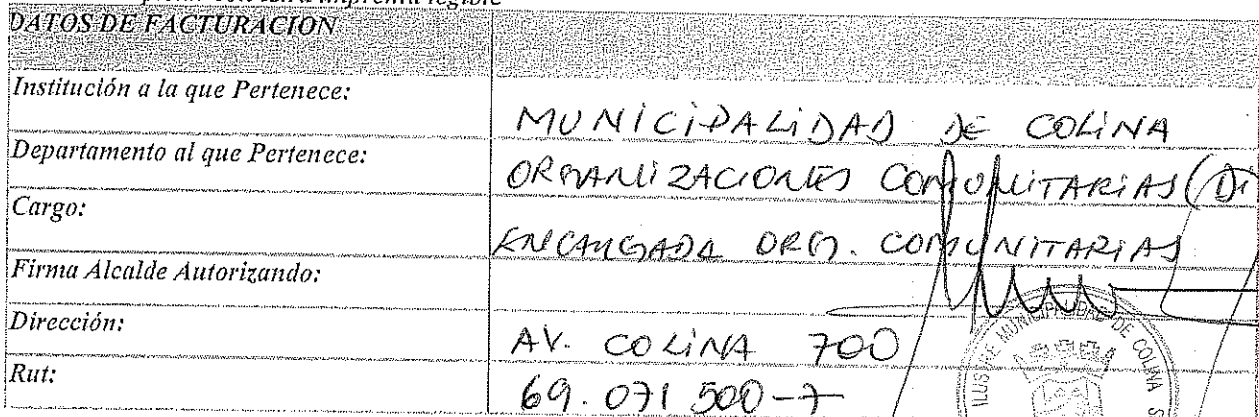 imprenta legible
DATOS DE FACTURACION
Institución a la que Pertenece: MUNICIPALIDAD DE COLINA
Departamento al que Pertenece: ORGANIZACIONES COMUNITARIAS (DI
Cargo: ENCARGADA ORG. COMUNITARIAS
Firma Alcalde Autorizando:
Dirección: AV. COLINA 700
Rut: 69.071500-7
ILUSTRE MUNICIPALIDAD DE COLINA